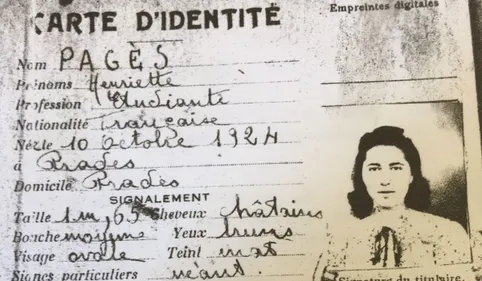 CARTE D'IDENTITÉ
Empreintes digitales
Nom PAGÈS
Prénoms Henriette
Profession Etudiante
Nationalité Française
Née le 10 Octobre 1924
à Prades
Domicile Prades
SIGNALEMENT
Taille 1m,65 Cheveux châtains
Bouche moyenne Yeux bruns
Visage ovale Teint mat
Signes particuliers néant.
Signature du titulaire,